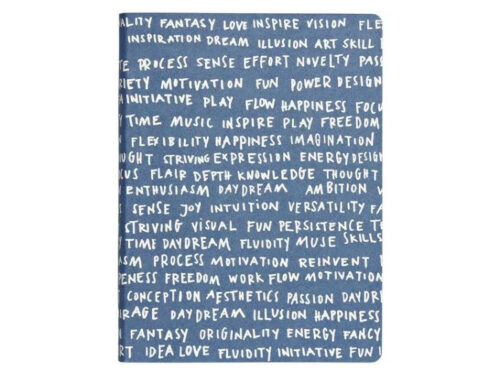 ALITY FANTASY LOVE INSPIRE VISION FLE
INSPIRATION DREAM ILLUSION ART SKILL
TE PROCESS SENSE EFFORT NOVELTY PAS
RIETY MOTIVATION FUN POWER DESIGN
INITIATIVE PLAY FLOW HAPPINESS FOCU
Y TIME MUSIC INSPIRE PLAY FREEDOM
FLEXIBILITY HAPPINESS IMAGINATION
OUGHT STRIVING EXPRESSION ENERGY DESIGN
CUS FLAIR DEPTH KNOWLEDGE THOUGHT
ENTHUSIASM DAYDREAM AMBITION V
SENSE JOY INTUITION VERSATILITY FA
STRIVING VISUAL FUN PERSISTENCE TO
Y TIME DAYDREAM FLUIDITY MUSE SKILLS
ASM PROCESS MOTIVATION REINVENT
PENESS FREEDOM WORK FLOW MOTIVATION
CONCEPTION AESTHETICS PASSION DAYDR
RAGE DAYDREAM ILLUSION HAPPINESS
FANTASY ORIGINALITY ENERGY FANCY
RT IDEA LOVE FLUIDITY INITIATIVE FUN I